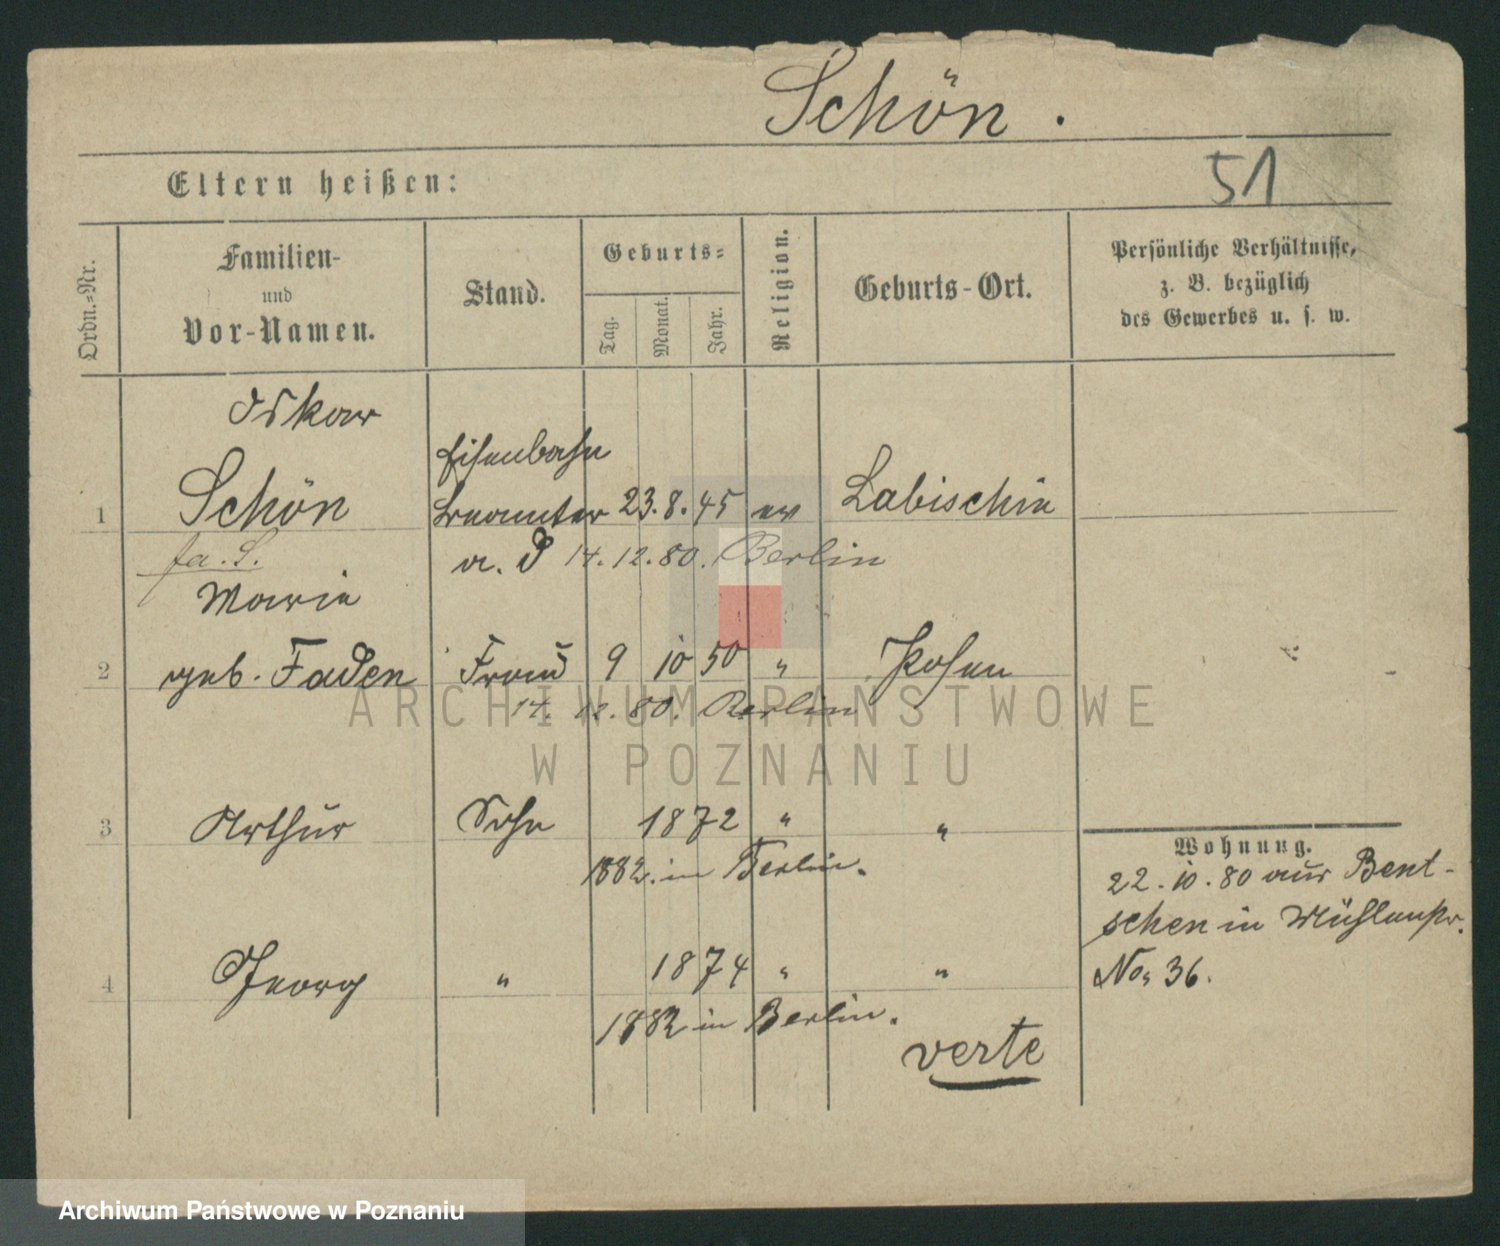 Schön.
Eltern heißen:
51
Ordn.=Nr.
Familien-
und
Vor-Namen.
Stand.
Geburts=
Tag.
Monat.
Jahr.
Religion.
Geburts-Ort.
Persönliche Verhältnisse,
z. B. bezüglich
des Gewerbes u. s. w.
Oskar
Eisenbahn
1 Schön Beamter 23. 8. 45 ev Labischin
fa. S. a. D 14. 12. 80. Berlin
Marie
2 geb. Faden Frau 9 10 50 " Posen
14. 12. 80. Berlin
ARCHIWUM PAŃSTWOWE
W POZNANIU
3 Arthur Sohn 1872 " "
1882. in Berlin.
Wohnung.
22. 10. 80 aus Bent-
schen in Mühlenstr.
No. 36.
4 Georg " 1874 " "
1882 in Berlin.
verte
Archiwum Państwowe w Poznaniu